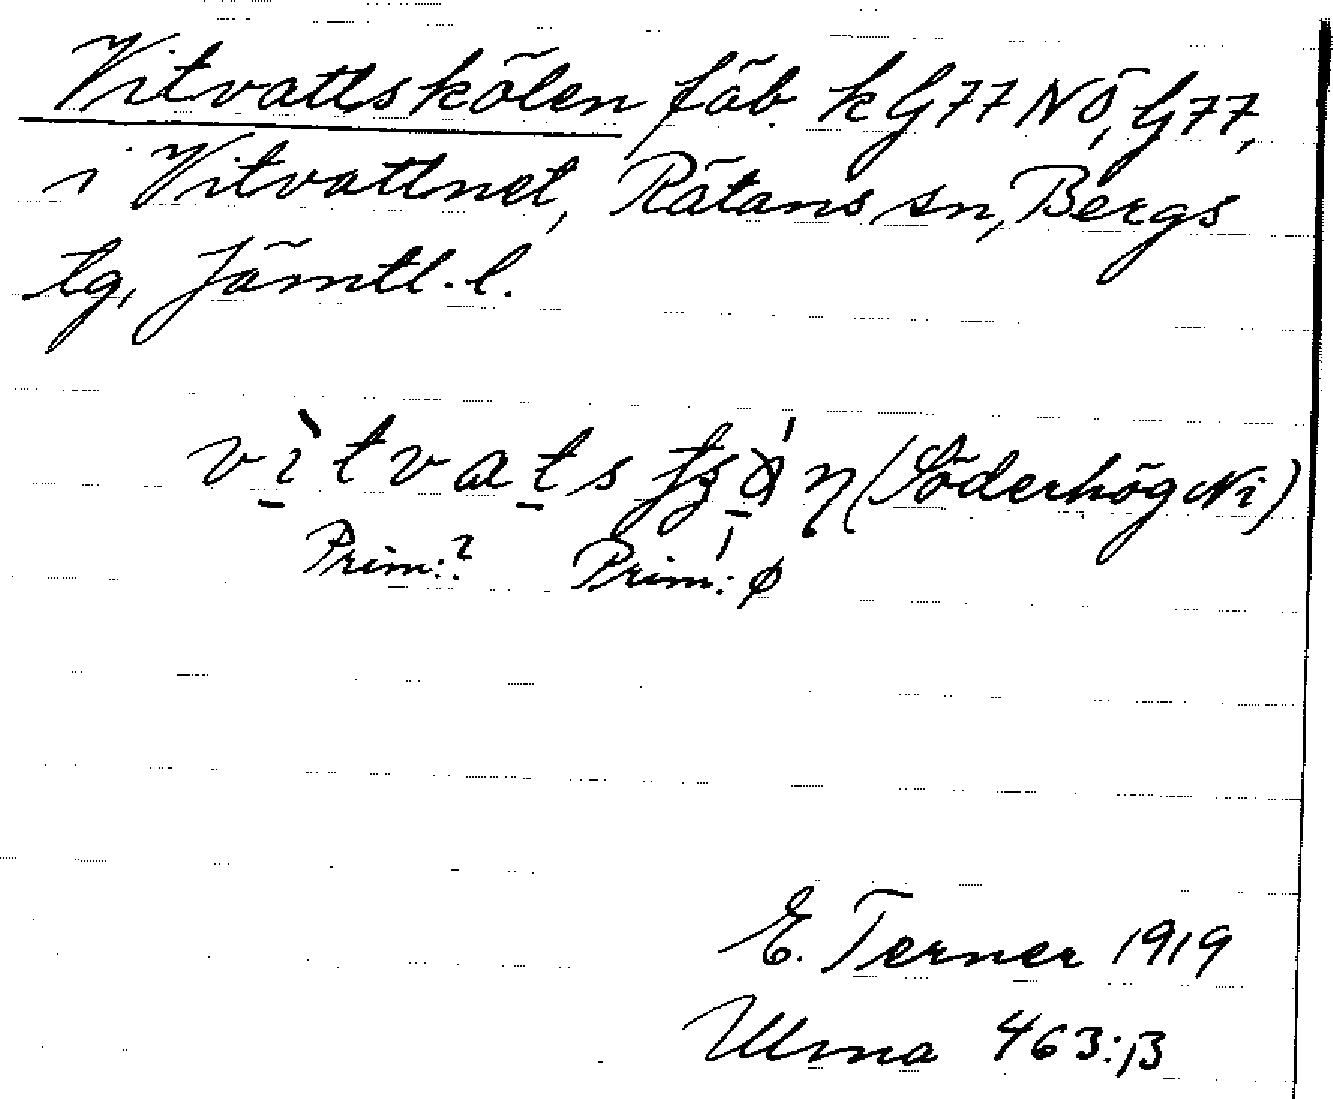 Vitvattskölen fäb. k G77 NÖ, G77,
i Vitvattnet, Rätans sn, Bergs
tg, Jämtl. l.
(Söderhög Ni)
Prim:? Prim: ø
E. Terner 1919
Ulma 463:13